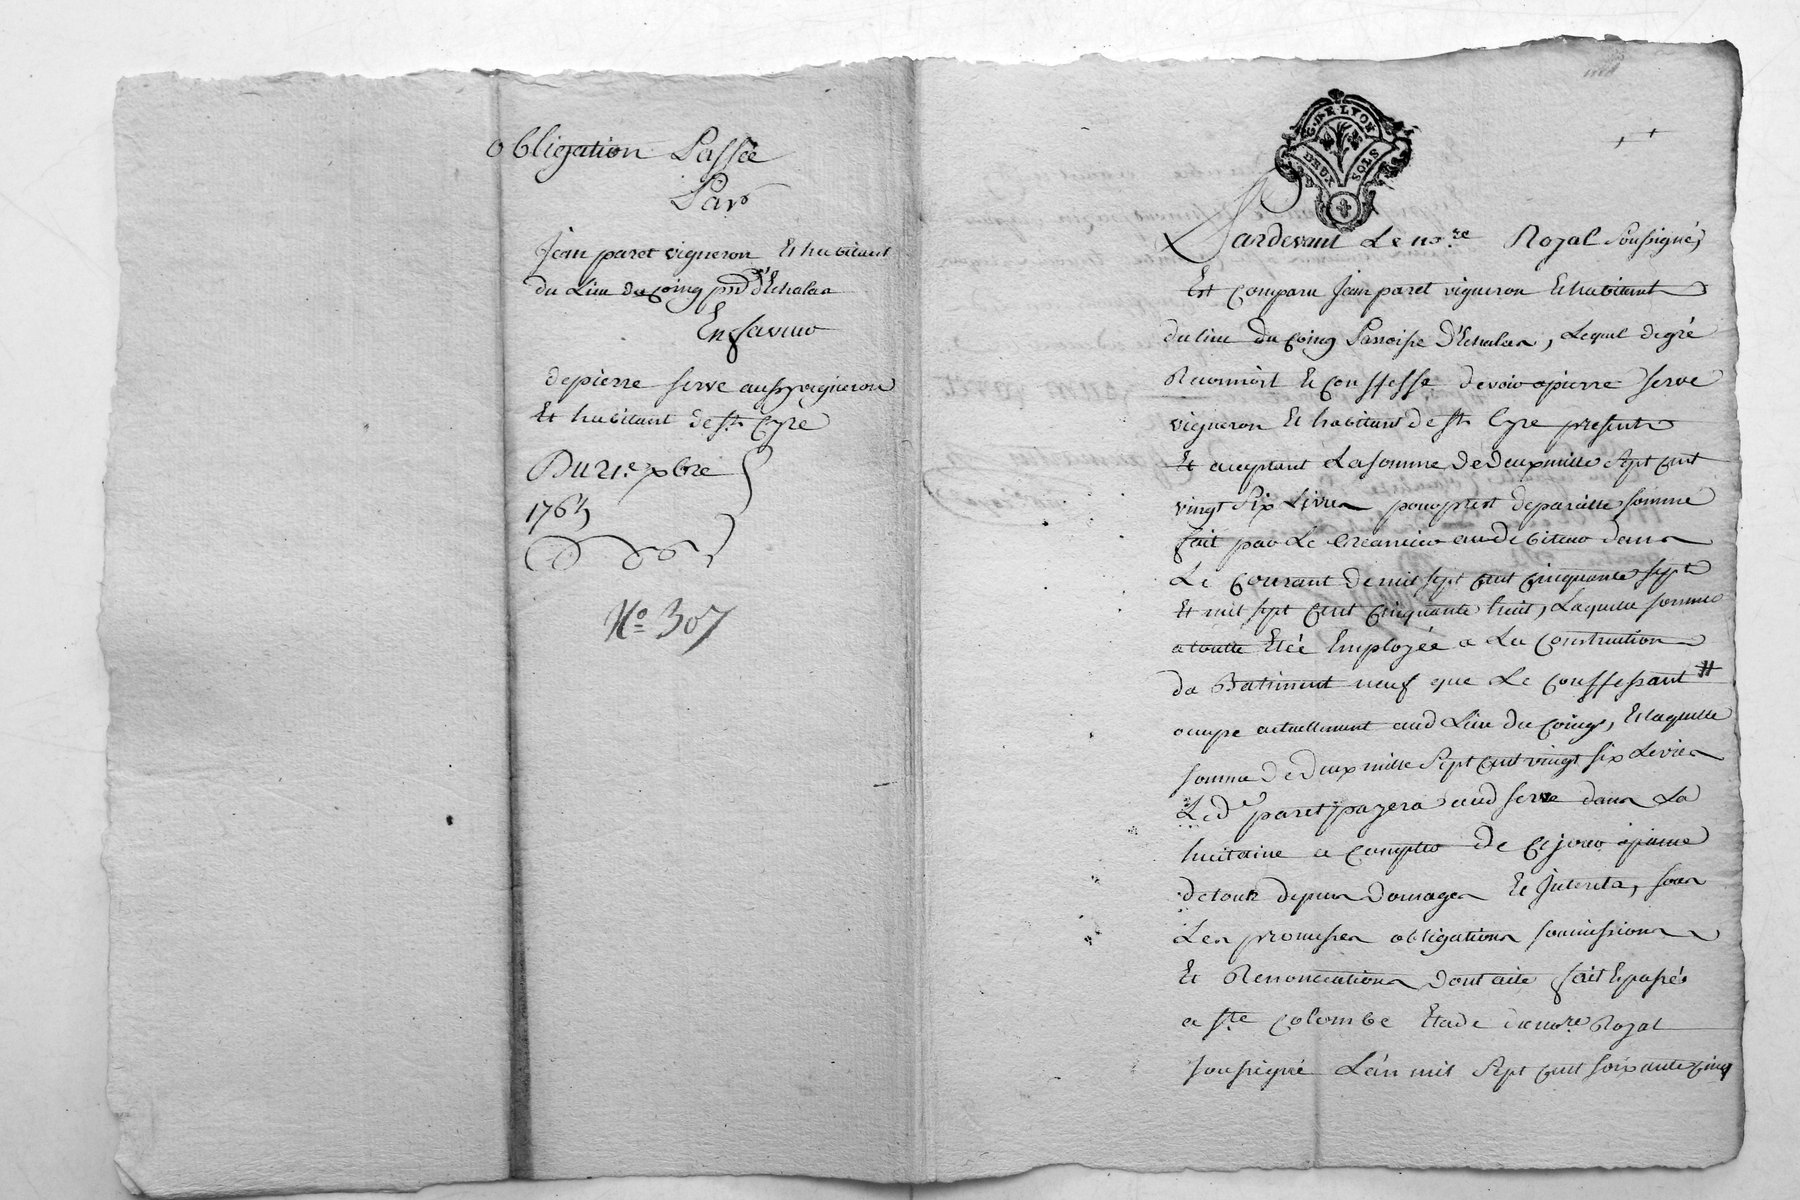 obligation Passée
Par
Jean paret vigneron Et habitant
du Lieu du Coing psse d'Echalas
En faveur
de pierre Serve aussy vigneron
Et habitant de St Cyre
Du 21e xbre
1765
No 307
G. DE LYON
DEUX SOLS
Pardevant Le nore Royal soussigné,
Est comparu Jean paret vigneron Et habitant
du lieu du Coing Parroisse d'Echalas, Lequel de gré
Reconnoit Et Confesse devoir a pierre Serve
vigneron Et habitant de St Cyre present
Et acceptant La somme de deux mille Sept cent
vingt Six Livres pour prest de pareille somme
fait par Le Creancier au debiteur dans
Le Courant de mil sept cent cinquante sept
Et mil sept cent cinquante huit, Laquelle somme
a toutte Eté Employée a La Construction
du Batiment neuf que Le Conffessant
occupe actuellement aud Lieu du Coing, Et laquelle
somme de deux mille Sept cent vingt six Livres
Led paret payera aud Serve dans La
huitaine a Compter de Ce jour a peine
de tous depens domages Et Interets, sous
Les promesses obligations soumissions
Et Renonciations dont acte fait Et passé
a Ste Colombe Etude du nore Royal
soussigné L'an mil Sept cent soixante cinq